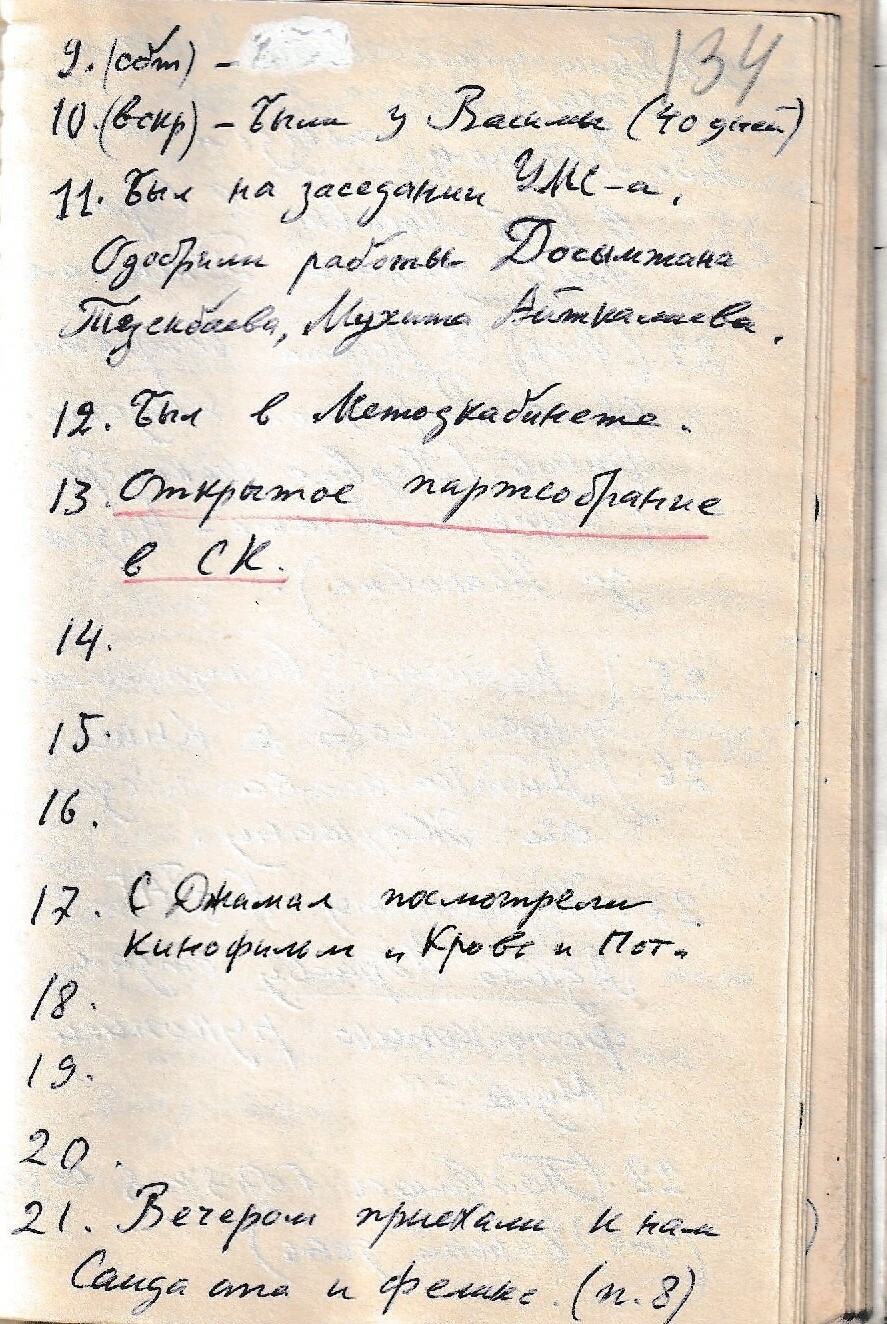 134
9. (сбт) -
10. (вскр) - Были у Васимы (40 дней)
11. Был на заседании УМС-а.
Одобрили работы Досымжана
Тезекбаева, Мухита Айткалиева.
12. Был в Методкабинете.
13. Открытое партсобрание
в СК.
14.
15.
16.
17. С Джамал посмотрели
кинофильм "Кровь и Пот"
18.
19.
20.
21. Вечером приехали к нам
Саида апа и Феликс. (п. 8)